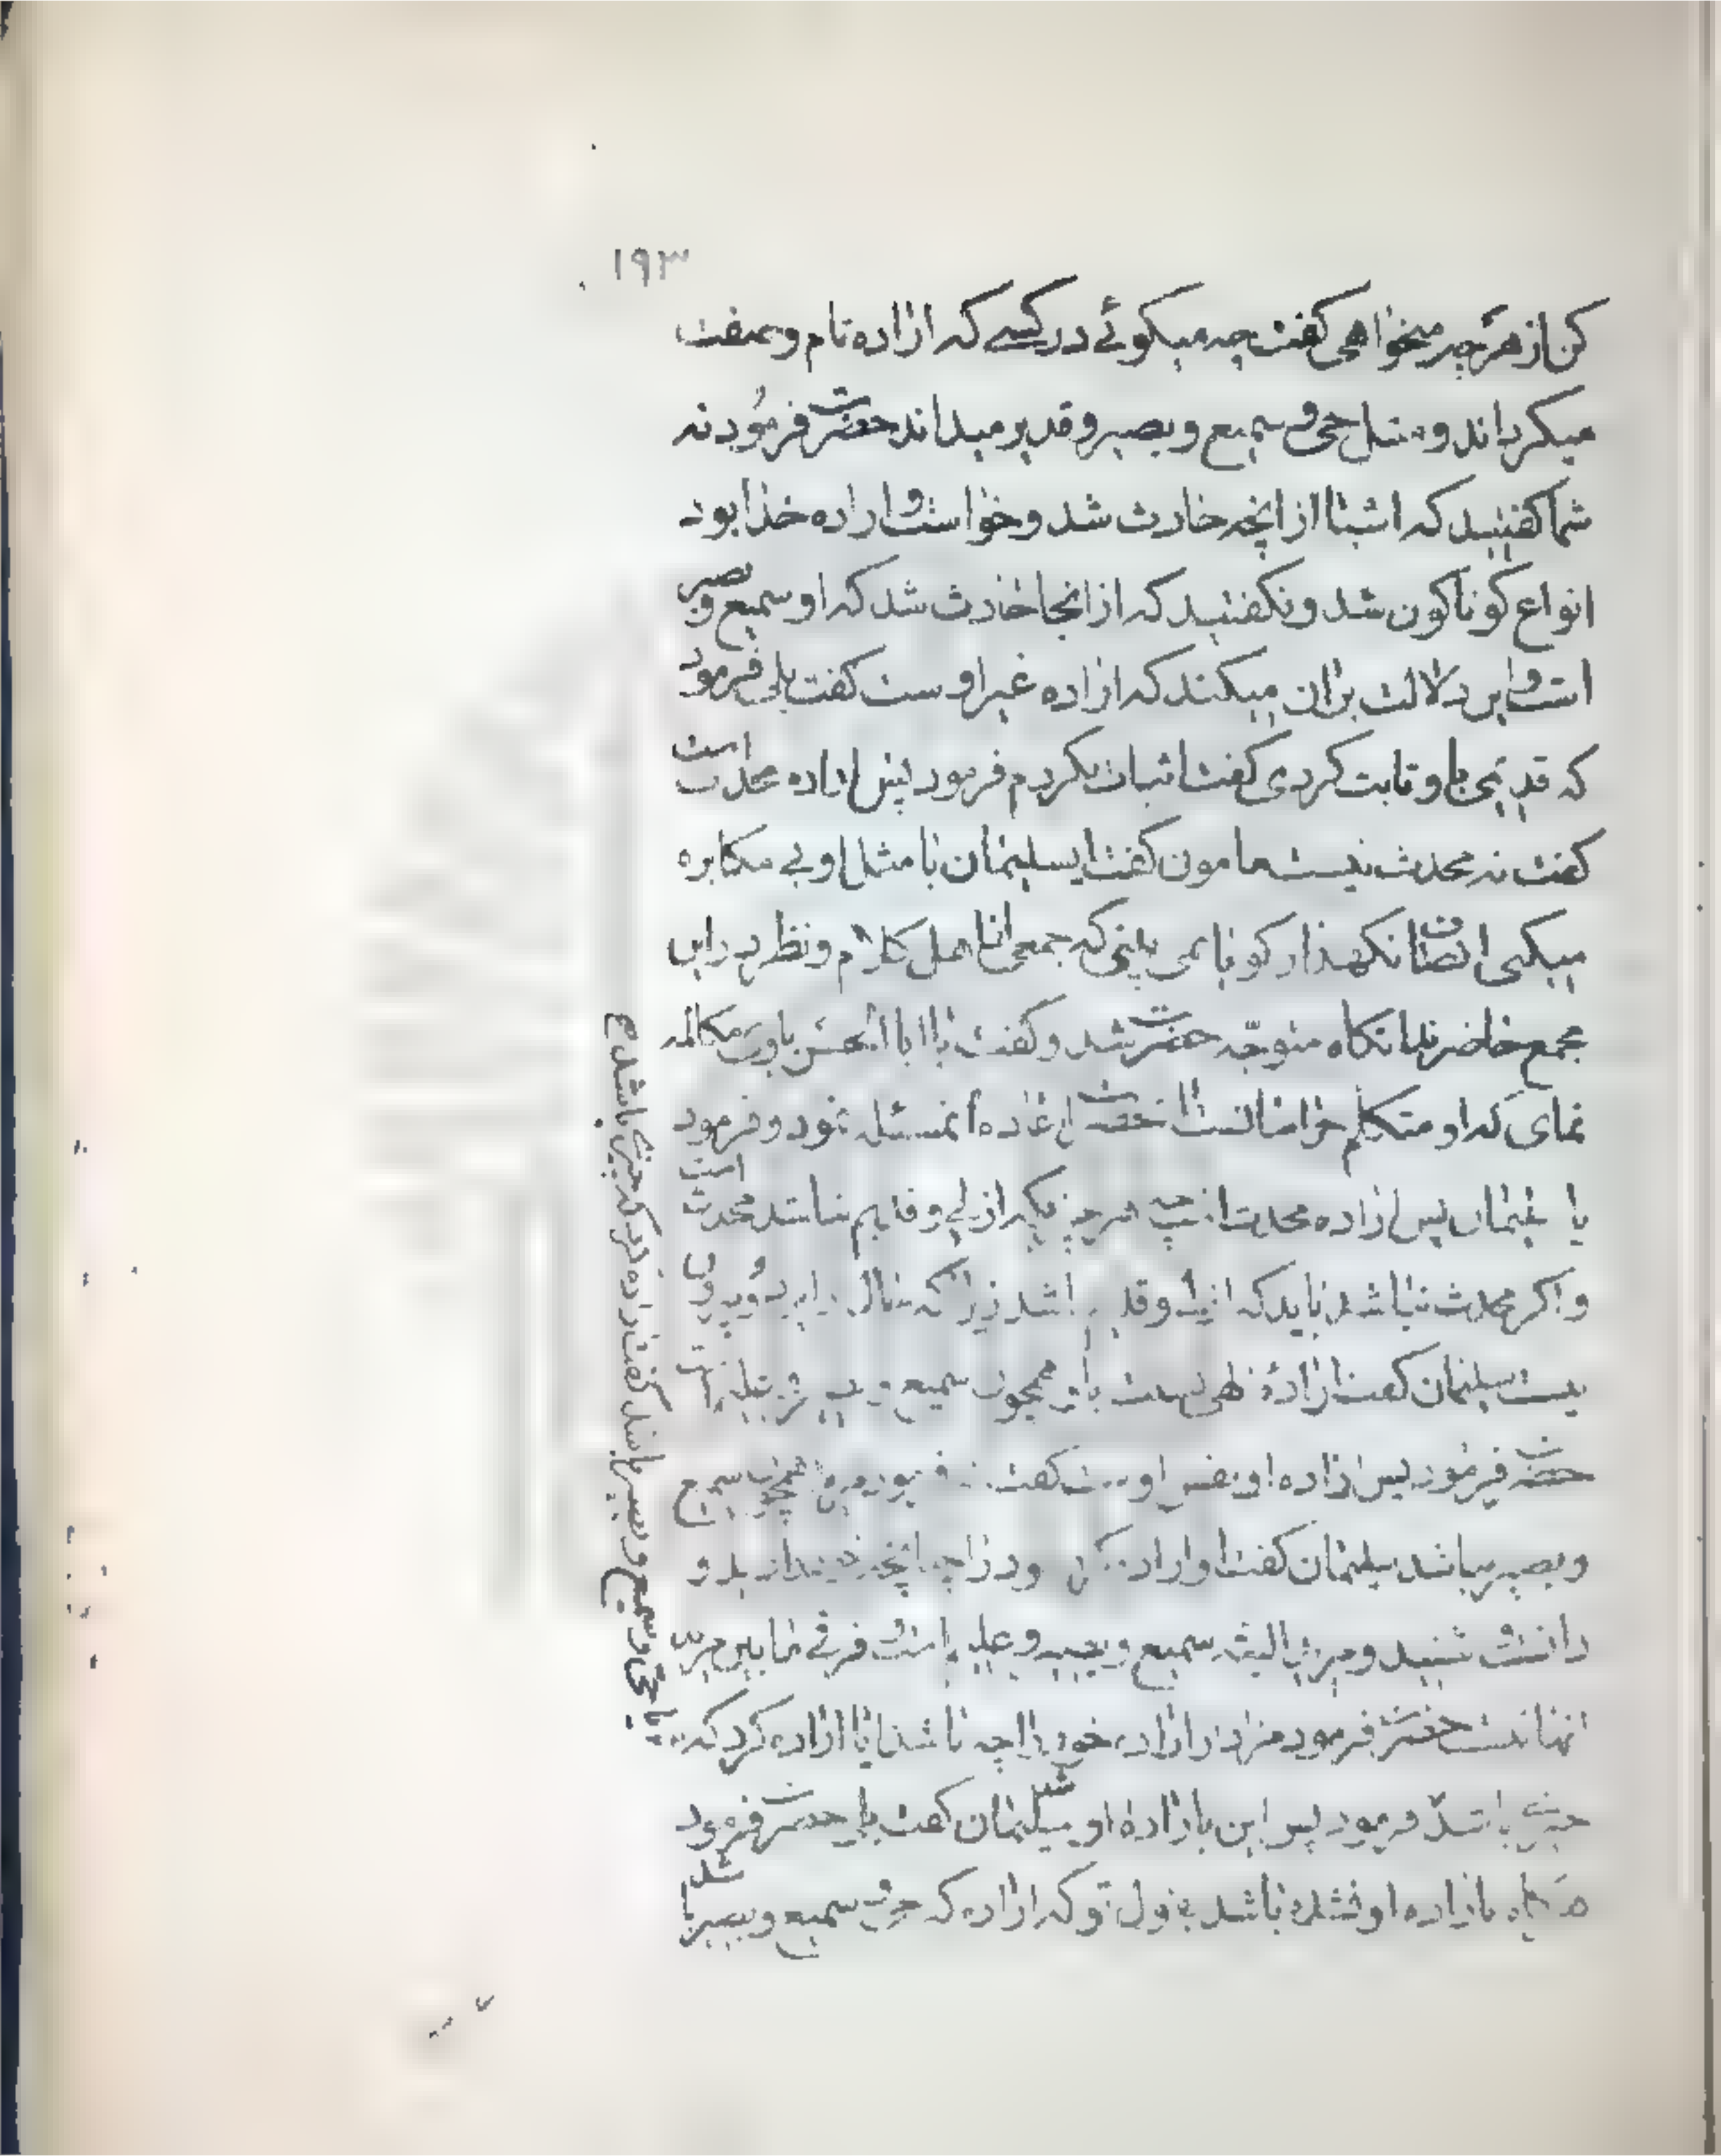 ۱۹۳
کن از هر چه میخواهی کفت چه میکوئے در کسے که اراده نام و صفت
میکرداند و مثل حی و سمیع و بصیر و قدیر میداند حضرت فرمود نه
شما کفتید که اشیا از انچه حادث شد و خواست و اراده خدا بود
انواع کوناکون شد و نکفتید که از انجا حادث شد که او سمیع و بصیر
است و این دلالت بران میکند که اراده غیر اوست کفت بلی فرمود
که قدیمی با او ثابت کردی کفت اثبات نکردم فرمود پس اراده محدث است
کفت نه محدث نیست مامون کفت ایسلیمان با مثل اویی مکابره
میکنی انصاف نکهدار کویا نمی بینی که جمعی از اهل کلام و نظر در این
مجمع حاضرند انکاه متوجّه حضرت شد و کفت یا ابا الحسن با وی مکالمه
نمای که او متکلم خراسانست انحضرت اعاده انمسئله نمود و فرمود
یا سلیمان پس اراده محدث است چه هر چیزیکه ازلی و قدیم نباشد محدث است
و اکر محدث نباشد باید که ازلی و قدیم باشد زیرا که میان این دو بیرون
نیست سلیمان کفت اراده هم با او همچون سمیع و بصیر
حضرت فرمود پس اراده او نفس اوست کفت نه فرمود مرید همچون سمیع
و بصیر نباشد سلیمان کفت او اراده کرد خود را چنانچه
دانست و شنید و مرید البته سمیع و بصیر و علیم است و فرقی نمابین
انها نیست حضرت فرمود مراد از اراده خود را چه باشد ایا اراده کرد که
چیزی باشد فرمود پس این باراده او شد سلیمان کفت بلی حضرت فرمود
هر کاه باراده او نشده باشد قول تو که اراده که حی و سمیع و بصیر باشد
یا حی و سمیع و بصیر باشد کفت اراده کرد که چیزی باشد